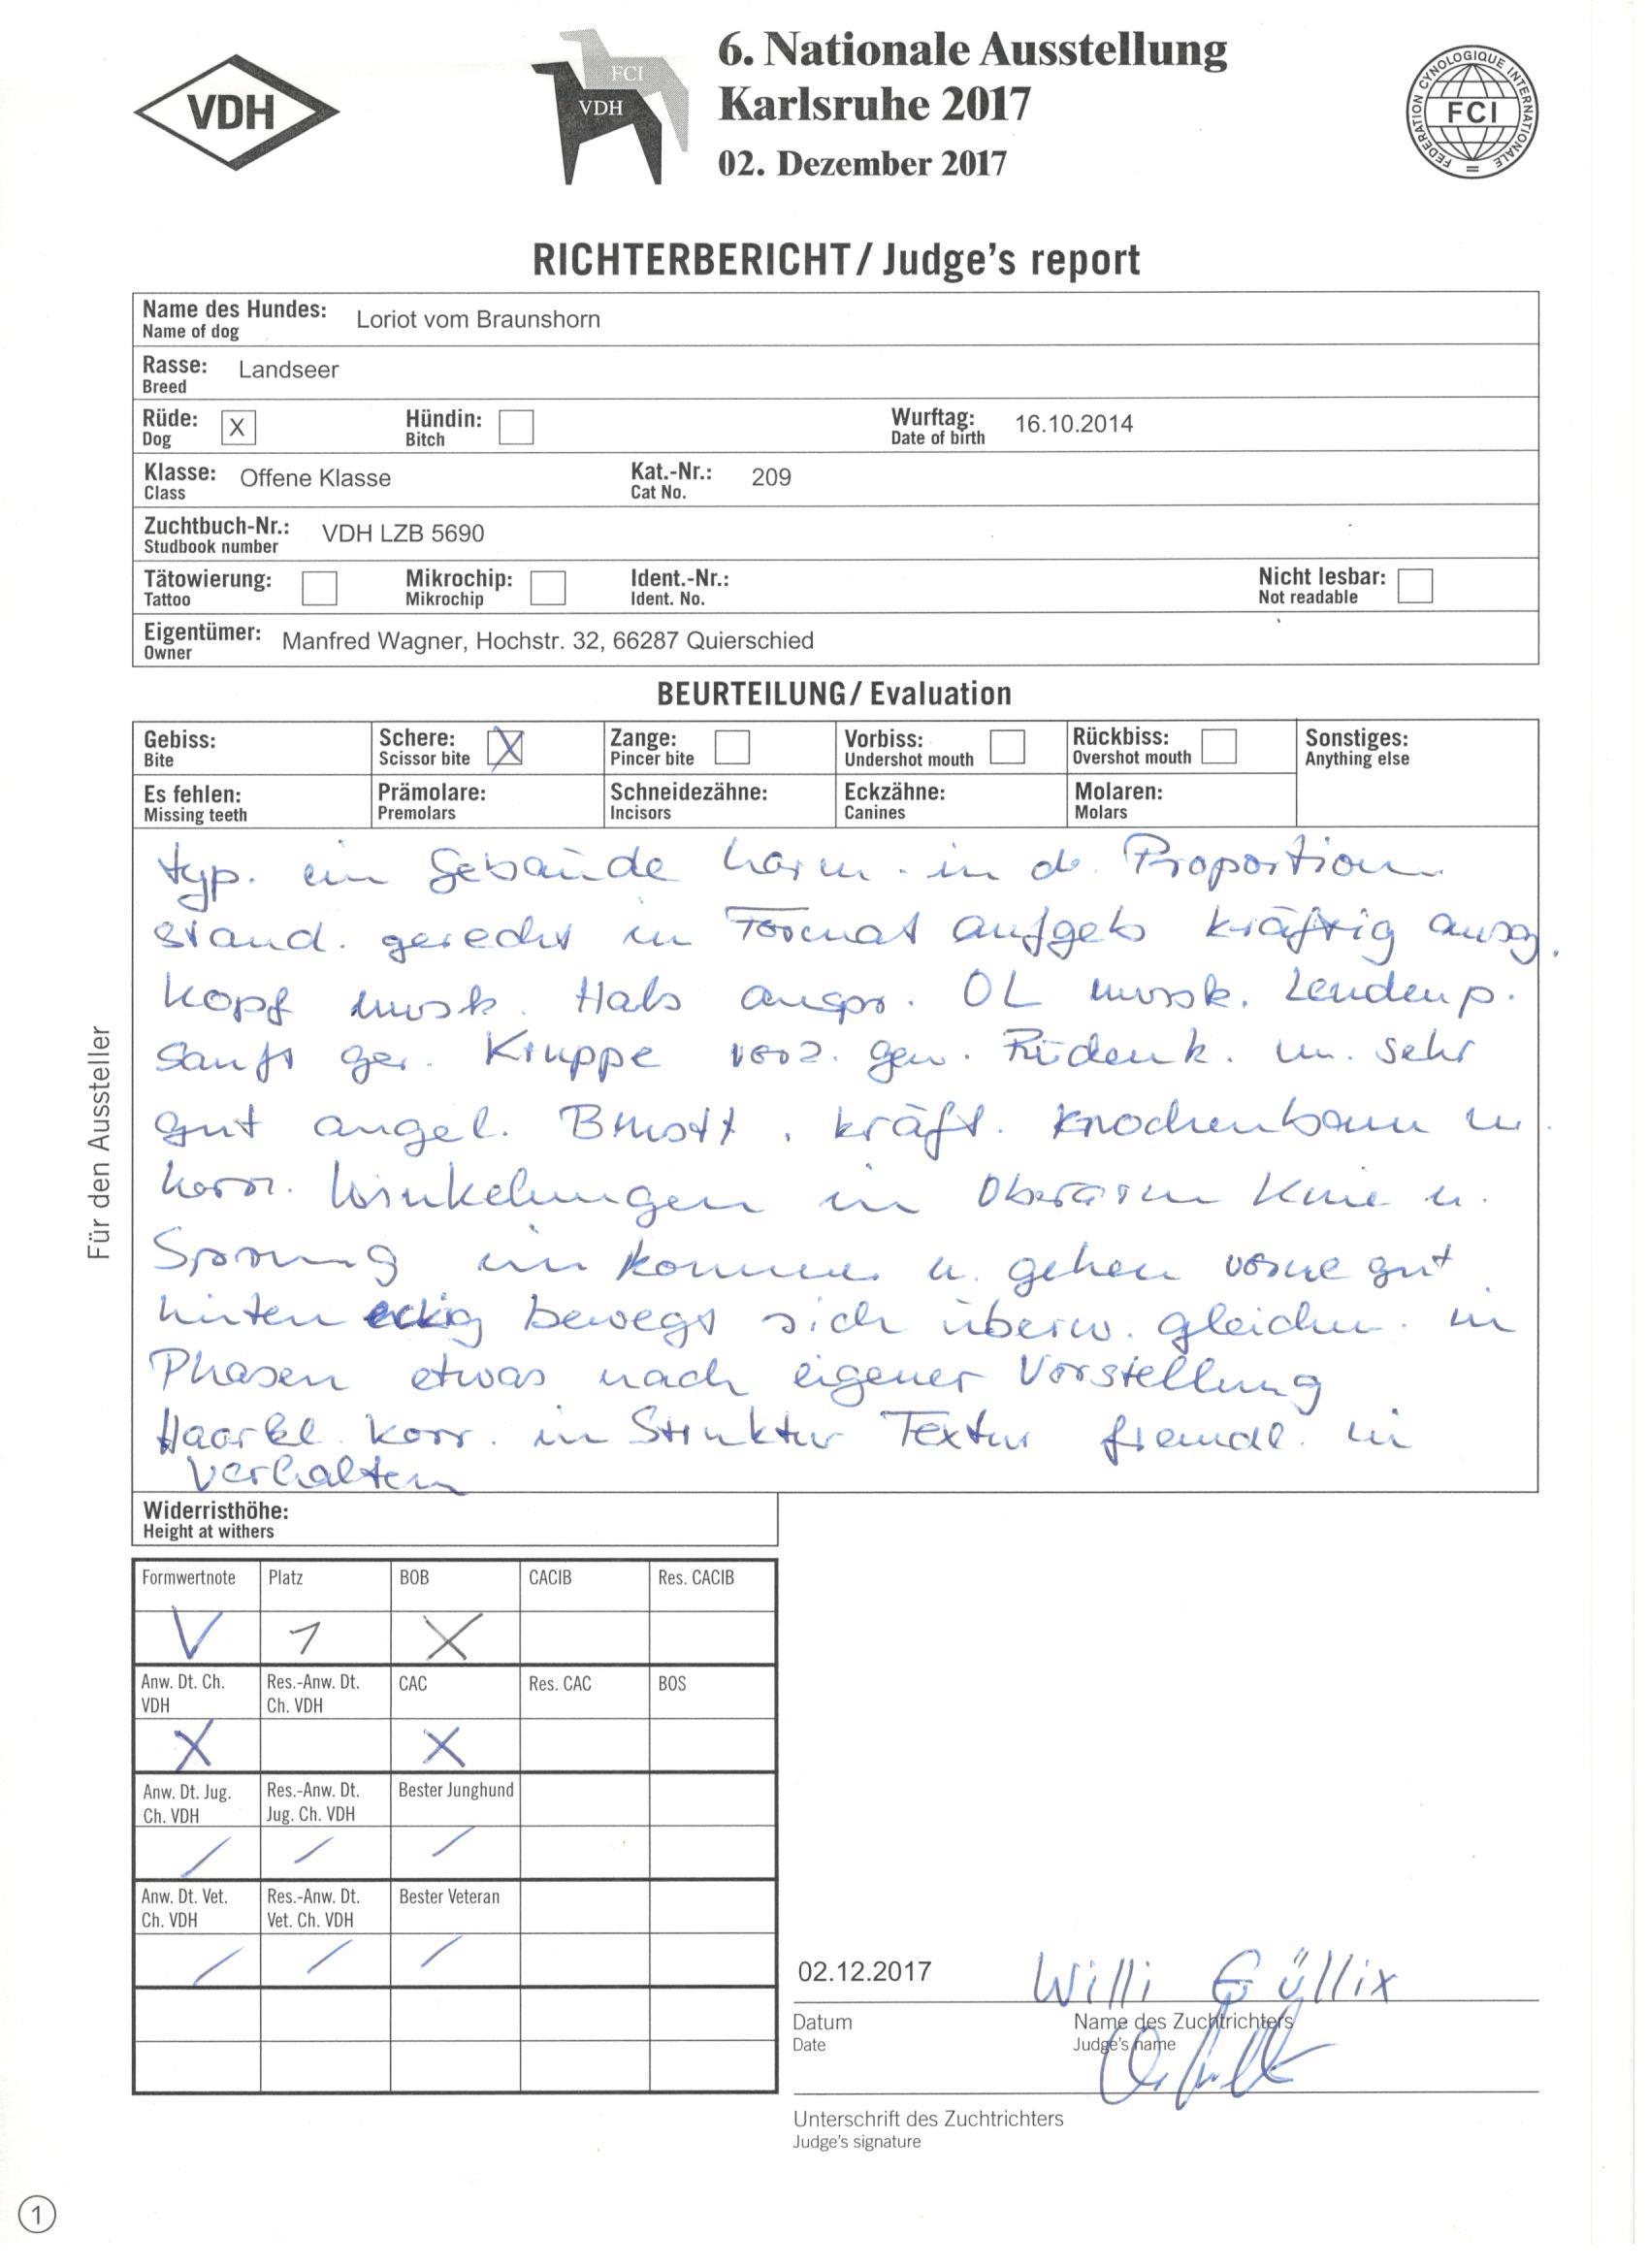 VDH
FCI
VDH
6. Nationale Ausstellung
Karlsruhe 2017
02. Dezember 2017
FEDERATION CYNOLOGIQUE INTERNATIONALE
FCI
RICHTERBERICHT/ Judge's report
Name des Hundes: Loriot vom Braunshorn
Name of dog
Rasse: Landseer
Breed
Rüde: X Hündin: Wurftag: 16.10.2014
Dog Bitch Date of birth
Klasse: Offene Klasse Kat.-Nr.: 209
Class Cat No.
Zuchtbuch-Nr.: VDH LZB 5690
Studbook number
Tätowierung: Mikrochip: Ident.-Nr.: Nicht lesbar:
Tattoo Mikrochip Ident. No. Not readable
Eigentümer: Manfred Wagner, Hochstr. 32, 66287 Quierschied
Owner
BEURTEILUNG/ Evaluation
Gebiss: Schere: X Zange: Vorbiss: Rückbiss: Sonstiges:
Bite Scissor bite Pincer bite Undershot mouth Overshot mouth Anything else
Es fehlen: Prämolare: Schneidezähne: Eckzähne: Molaren:
Missing teeth Premolars Incisors Canines Molars
typ. im Gebäude harm. in d. Proportion
stand. gerecht im Format aufgeb kräftig ausg.
Kopf musk. Hals ausgpr. OL musk. Lendenp.
sanft ger. Kruppe vorz. gew. Rüdenk. m. sehr
gut angel. Brust, kräft. Knochenbau u.
korr. Winkelungen in Oberarm Knie u.
Sprung im kommen u. gehen vorne gut
hinten eckig bewegt sich überw. gleichm. in
Phasen etwas nach eigener Vorstellung
Haarkl. korr. in Struktur Textur freundl. im
Verhalten
Für den Aussteller
Widerristhöhe:
Height at withers
Formwertnote Platz BOB CACIB Res. CACIB
V 1 X
Anw. Dt. Ch. Res.-Anw. Dt. CAC Res. CAC BOS
VDH Ch. VDH
X X
Anw. Dt. Jug. Res.-Anw. Dt. Bester Junghund
Ch. VDH Jug. Ch. VDH
/ / /
Anw. Dt. Vet. Res.-Anw. Dt. Bester Veteran
Ch. VDH Vet. Ch. VDH
/ / /
02.12.2017 Willi Güllix
Datum Name des Zuchtrichters
Date Judge's name
Unterschrift des Zuchtrichters
Judge's signature
1